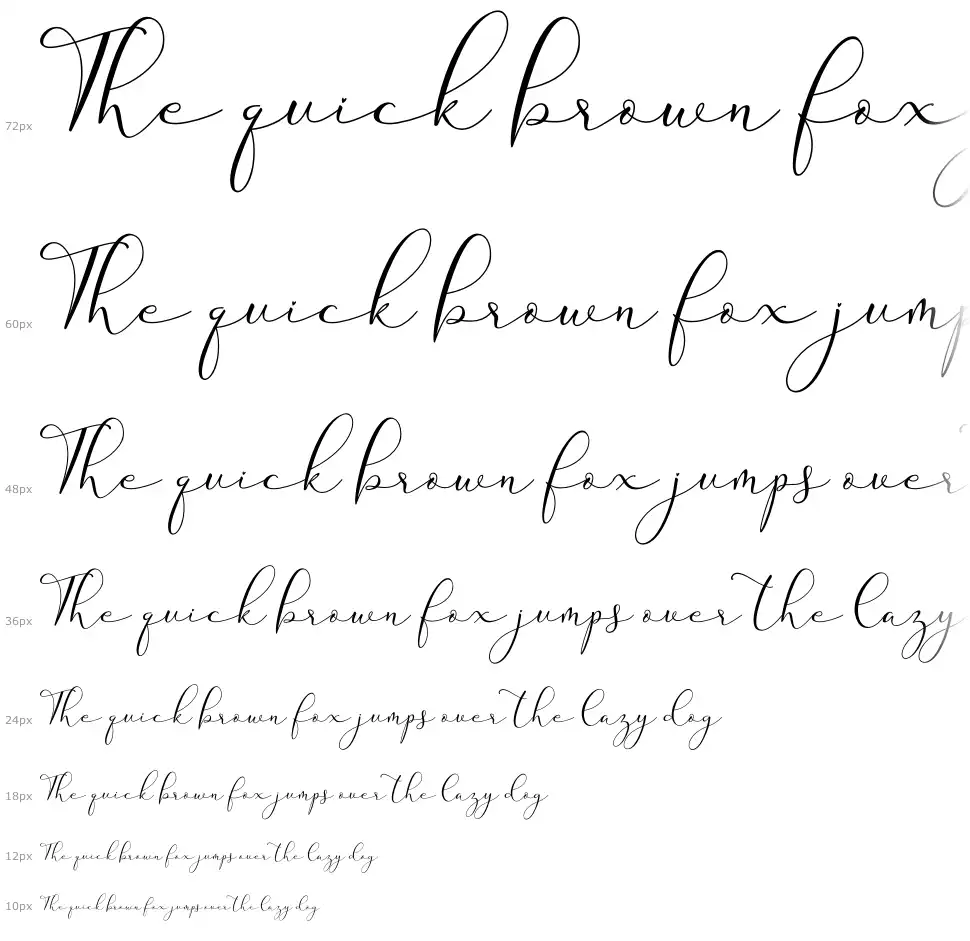 72px The quick brown fox
60px The quick brown fox jump
48px The quick brown fox jumps over
36px The quick brown fox jumps over the lazy
24px The quick brown fox jumps over the lazy dog
18px The quick brown fox jumps over the lazy dog
12px The quick brown fox jumps over the lazy dog
10px The quick brown fox jumps over the lazy dog